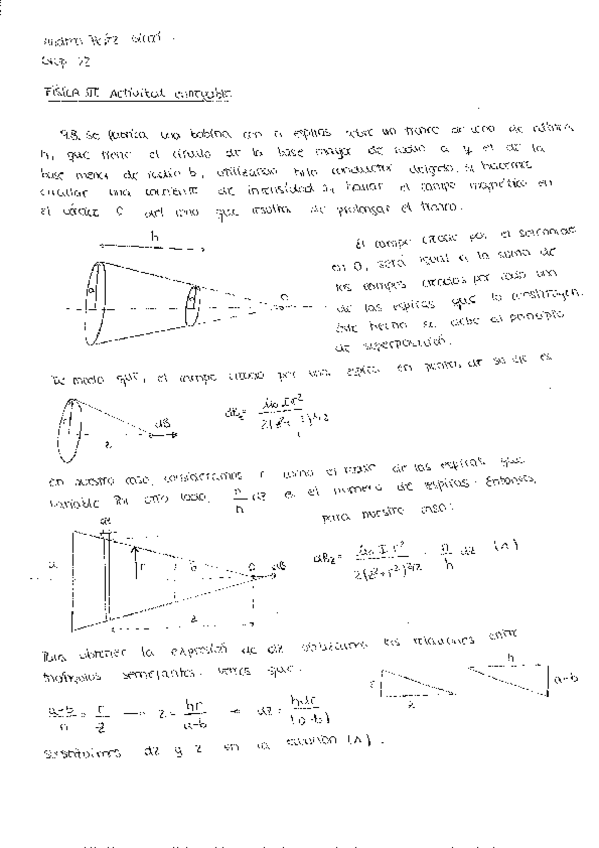 FÍSICA III Actividad entregable
9.8. Se fabrica una bobina con n espiras sobre un tronco de cono de altura
h, que tiene el círculo de la base mayor de radio a y el de la
base menor de radio b, utilizando hilo conductor delgado. Si hacemos
circular una corriente de intensidad I, hallar el campo magnético en
el vértice O del cono que resulta de prolongar el tronco.
h
a
b
O
El campo creado por el solenoide
en O, será igual a la suma de
los campos creados por cada una
de las espiras que lo constituyen.
Este hecho se debe al principio
de superposición.
De modo que, el campo creado por una espira en un punto de su eje es
r
z
dB
dBz = μ₀ I r² / 2(z²+r²)^3/2
En nuestro caso, consideramos r como el radio de las espiras que
variable Por otro lado, n/h dz es el número de espiras. Entonces,
para nuestro caso:
dz
a
r
b
O
dB
z
dBz = μ₀ I r² / 2(z²+r²)^3/2 · n/h dz (1)
Para obtener la expresión de dz utilizamos las relaciones entre
triángulos semejantes. Vemos que:
r
z
h
a-b
a-b/h = r/z → z = hr/a-b → dz = hdr/(a-b)
Sustituimos dz y z en la ecuación (1).